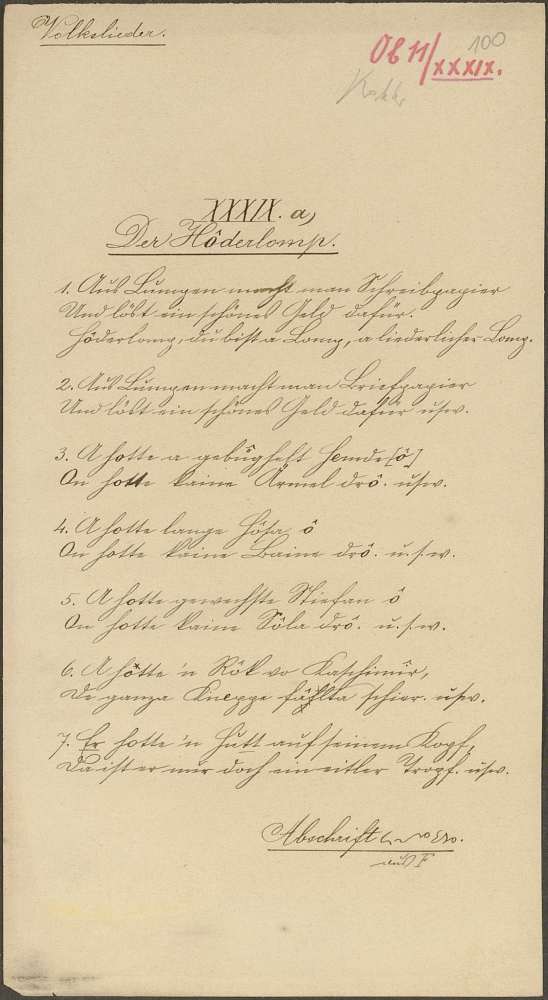 Volkslieder.
Ob 11/XXXIX.
100
XXXIX. a)
Der Höderlomp.
1. Aus Lumpen macht man Schreibpapier
Und löst ein schönes Geld dafür.
Höderlomp, du bist a Lomp, a liederlicher Lomp.
2. Aus Lumpen macht man Briefpapier
Und löst ein schönes Geld dafür usw.
3. A hotte a Hemde [ô]
On hotte kaine Ärmel drô. usw.
4. A hotte lange Hôsa ô
On hotte kaine Baine drô. u. s. w.
5. A hotte gewechste Stiefan ô
On hotte kaine Sôla drô. u. s. w.
6. A hotte 'n Rôk vo Kaschimir,
De ganza Kneppe fählta schier. usw.
7. Er hotte 'n Hutt auf seinem Kopf,
Da ist er nur doch ein eitler Tropf. usw.
Abschrift